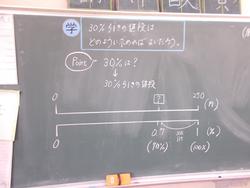 学
30%引きの値段は
どのようにもとめればよいだろう。
Point
30%は?
↓
30%引きの値段
?
0
250
(円)
0
0.7
(%)
(70%)
(100%)